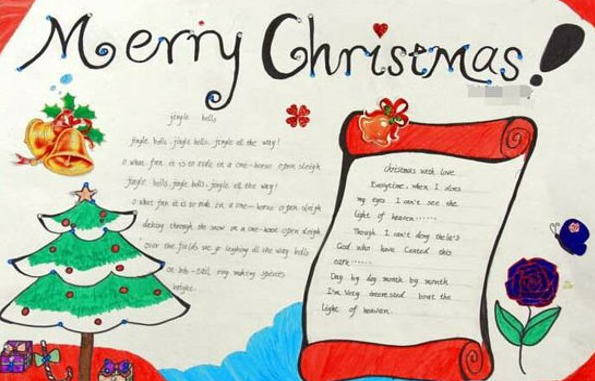 Merry Christmas!
jingle bells
jingle bells, jingle bells, jingle all the way!
o what fun it is to ride in a one-horse open sleigh
jingle bells, jingle bells, jingle all the way!
o what fun it is to ride in a one-horse open sleigh
dashing through the snow in a one-horse open sleigh
over the fields we go laughing all the way bells
on bob-tail ring making spirits
bright.
Christmas with love
Everytime, when I
my eyes I can't see the
light of heaven......
Though I can't
God who have this
......
Day by day month by month
I'm Very the
light of heaven.